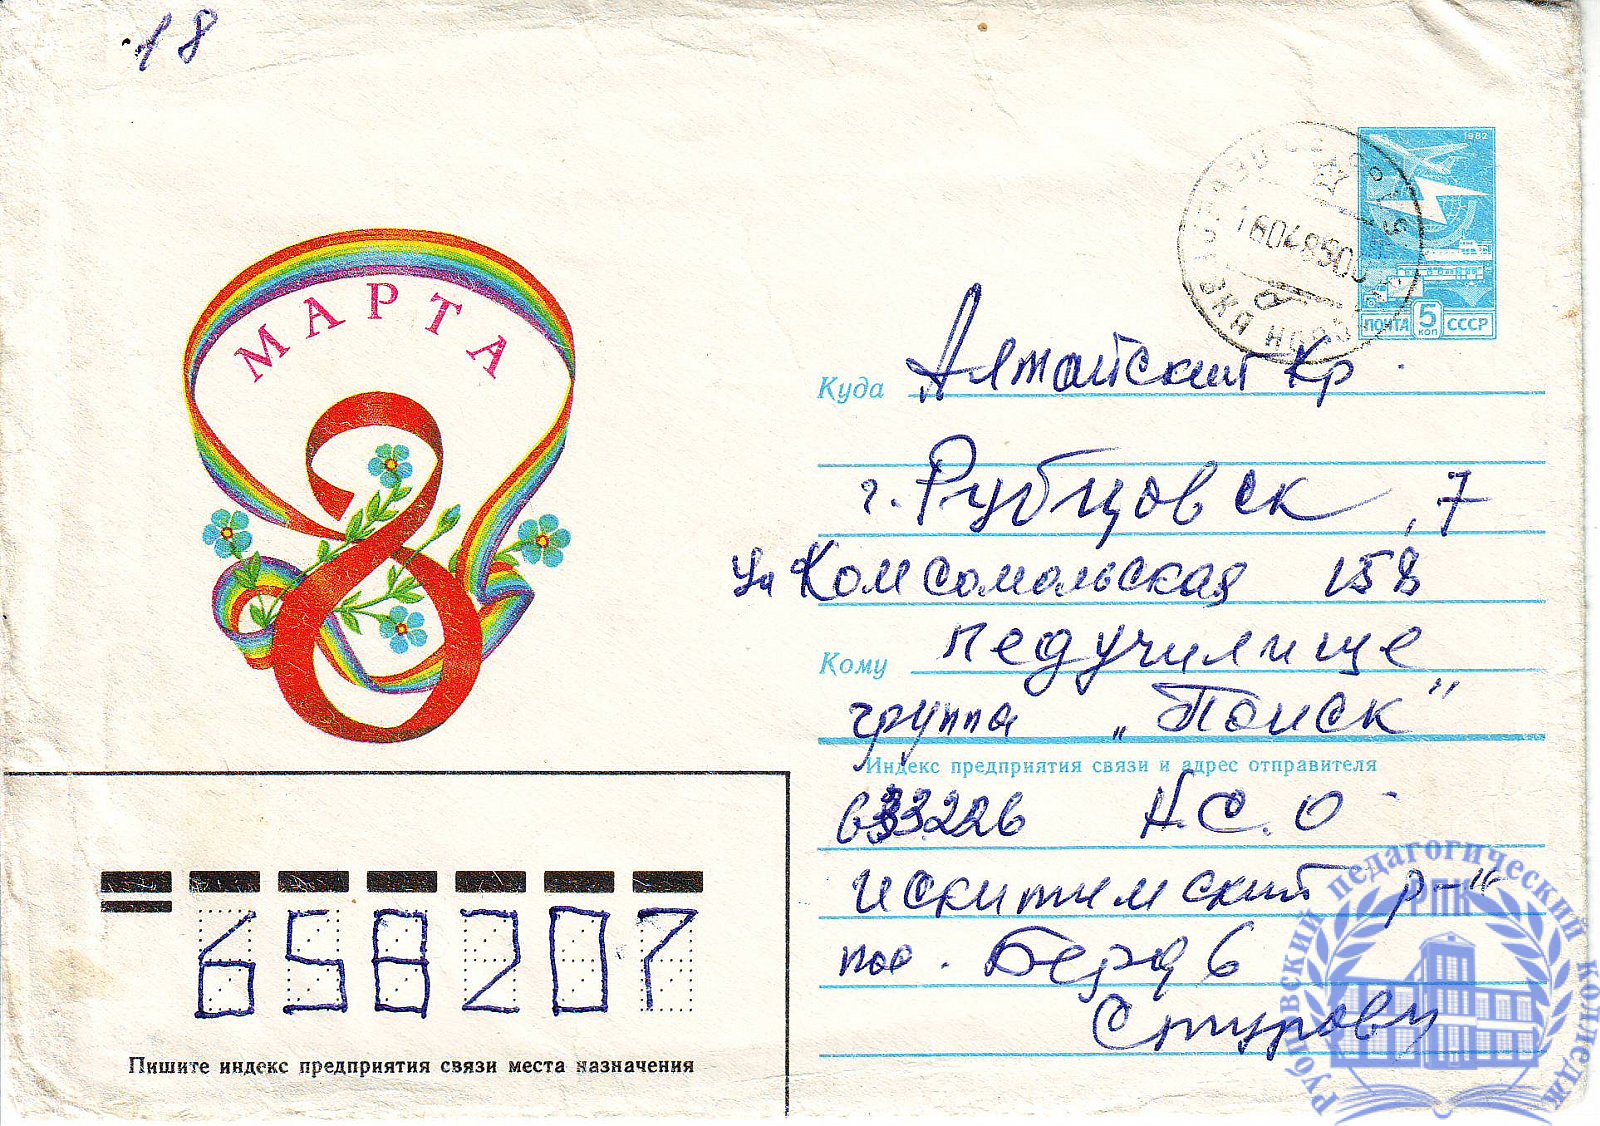 18
МАРТА
8
1982
ПОЧТА 5 КОП СССР
Куда Алтайский Кр.
г. Рубцовск, 7
ул Комсомольская 158
Кому педучилище
группа „Поиск"
Индекс предприятия связи и адрес отправителя
633226 Н.С.О.
Искитимский р-н
пос.
658207
Пишите индекс предприятия связи места назначения
Рубцовский педагогический колледж
РПК